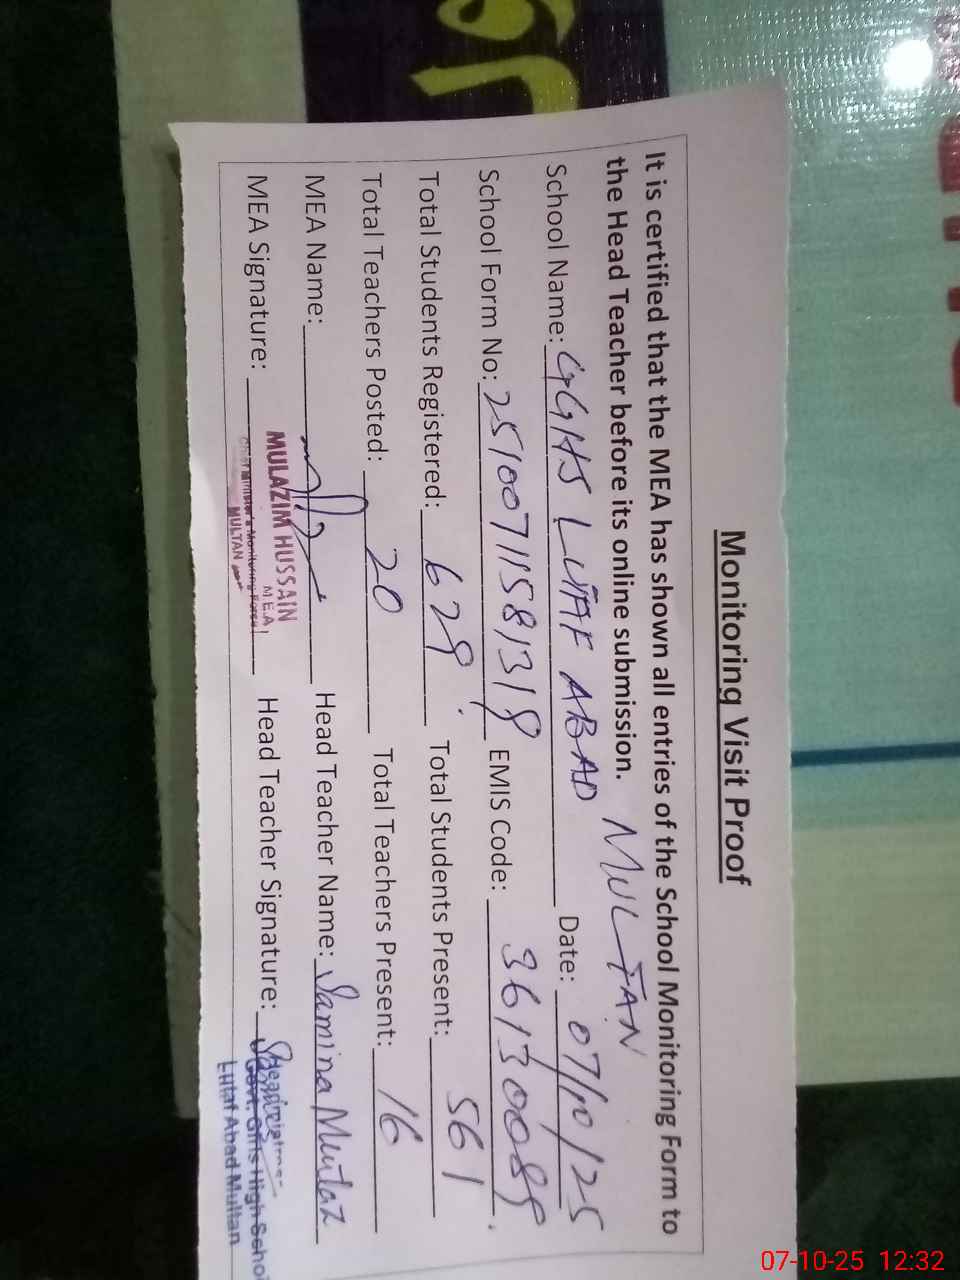 Monitoring Visit Proof
It is certified that the MEA has shown all entries of the School Monitoring Form to
the Head Teacher before its online submission. MULTAN
School Name: GGHS LUTAF ABAD Date: 07/10/25
School Form No: 25100711581319 EMIS Code: 36130089
Total Students Registered: 629 Total Students Present: 561
Total Teachers Posted: 20 Total Teachers Present: 16
MEA Name: Head Teacher Name: Samina Mumtaz
MEA Signature: Head Teacher Signature:
MULAZIM HUSSAIN
M.E.A
Chief Minister's Monitoring Force
MULTAN
Headmistress
Govt. Girls High School
Lutaf Abad Multan
07-10-25 12:32